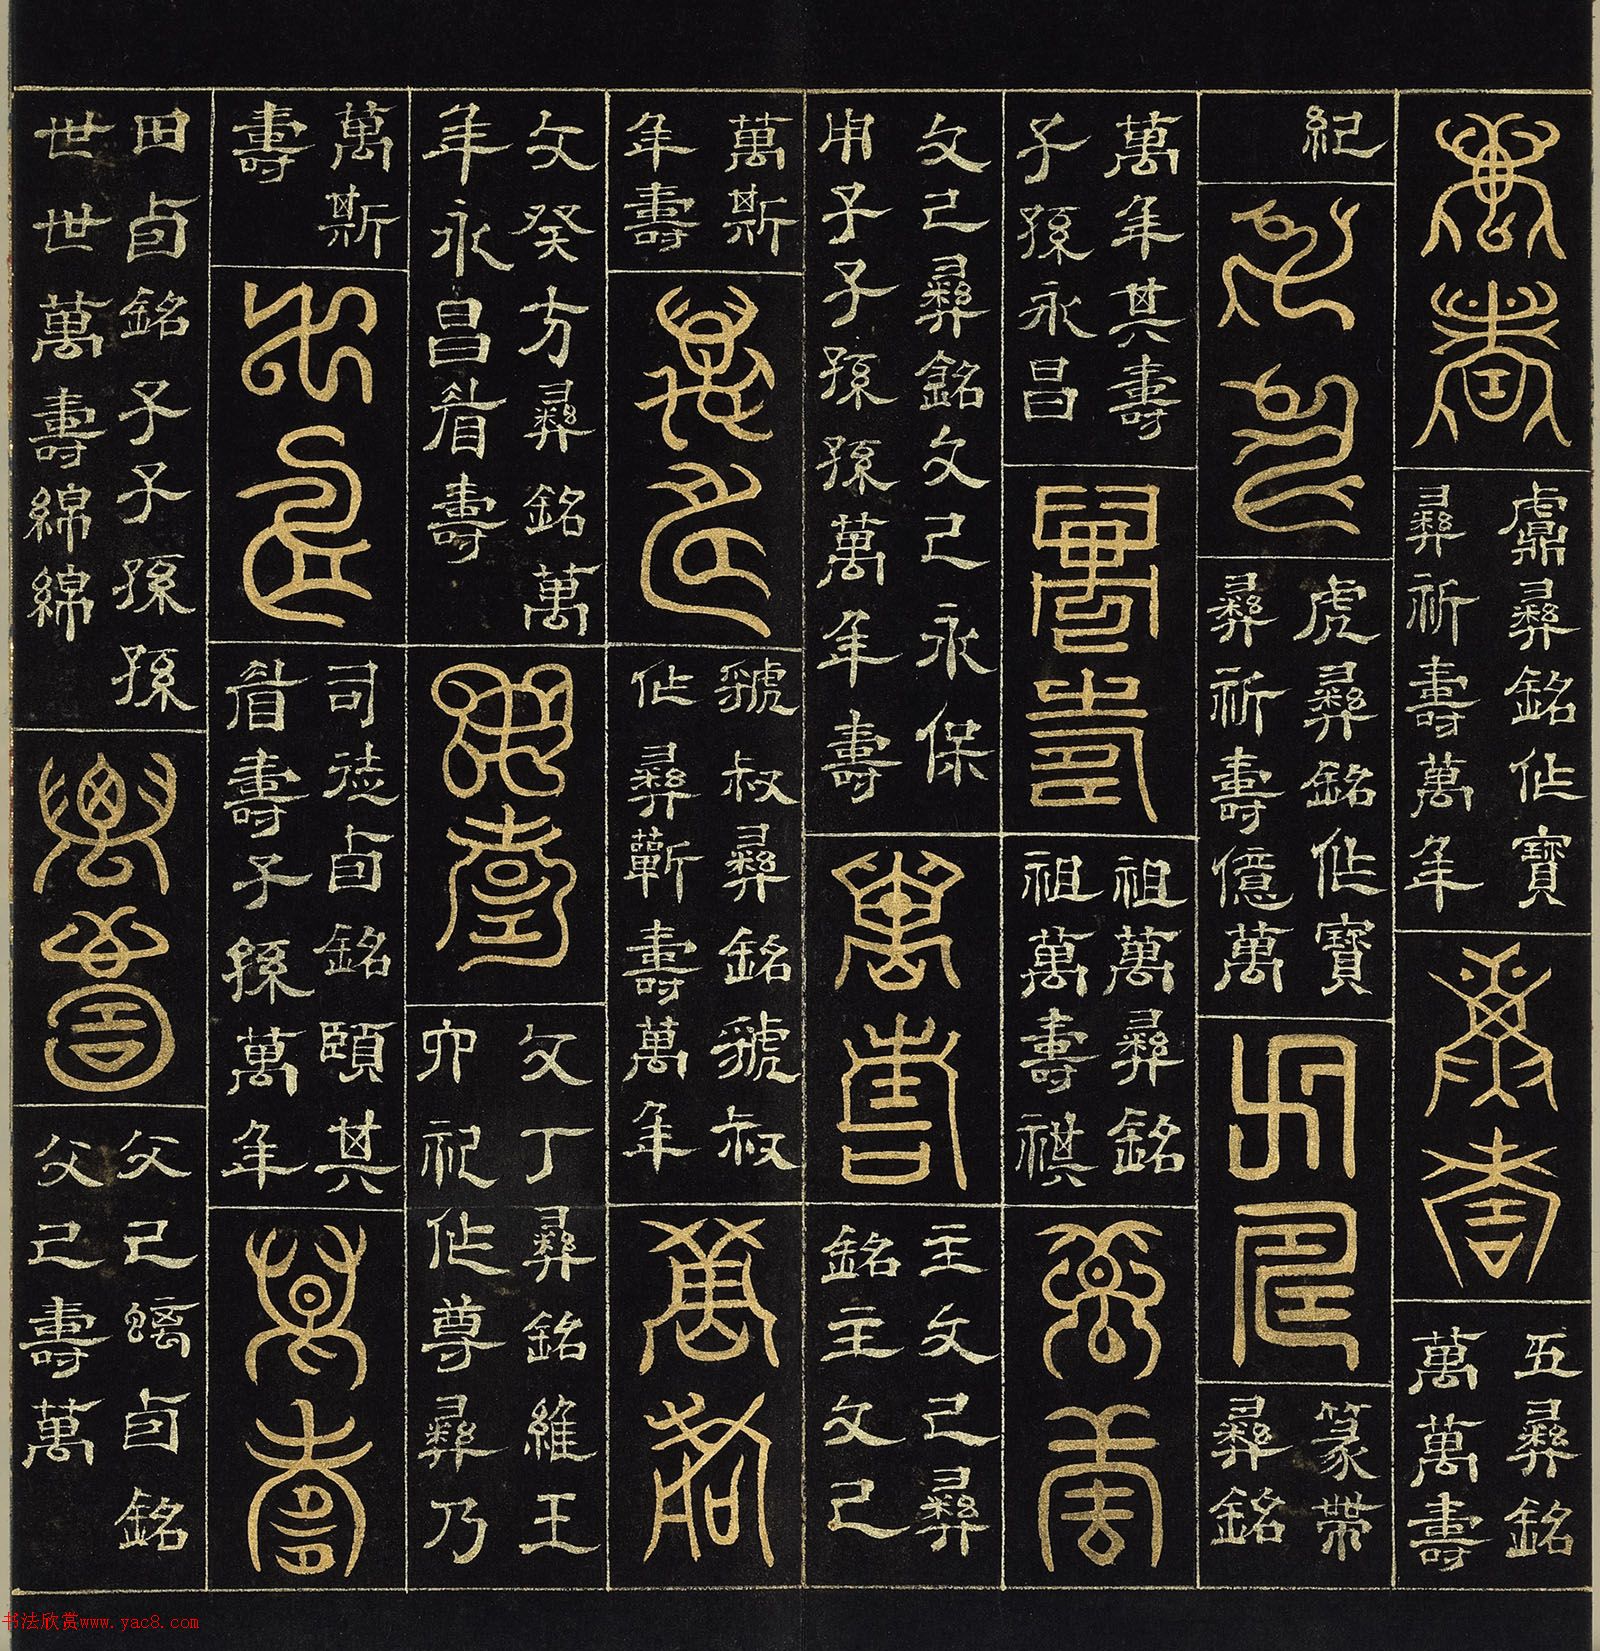 萬壽
彝銘作寶
彝祈壽萬年
萬壽
五彝銘
萬萬壽
紀
萬壽
虎彝銘作寶
彝祈壽億萬
萬壽
篆帶
彝銘
萬年其壽
子孫永昌
萬壽
祖萬彝銘
祖萬壽祺
萬壽
文己彝銘文己永保
用子子孫孫萬年壽
萬壽
主文己彝
銘主文己
萬斯
年壽
萬壽
虢叔彝銘虢叔
作彝蘄壽萬年
萬壽
文癸方彝銘萬
年永昌眉壽
萬壽
文丁彝銘維王
六祀作尊彝乃
萬斯
壽
萬壽
司徒卣銘頤其
眉壽子孫萬年
萬壽
田卣銘子子孫孫
世世萬壽綿綿
萬壽
父己卣銘
父己壽萬
书法欣赏www.yac8.com